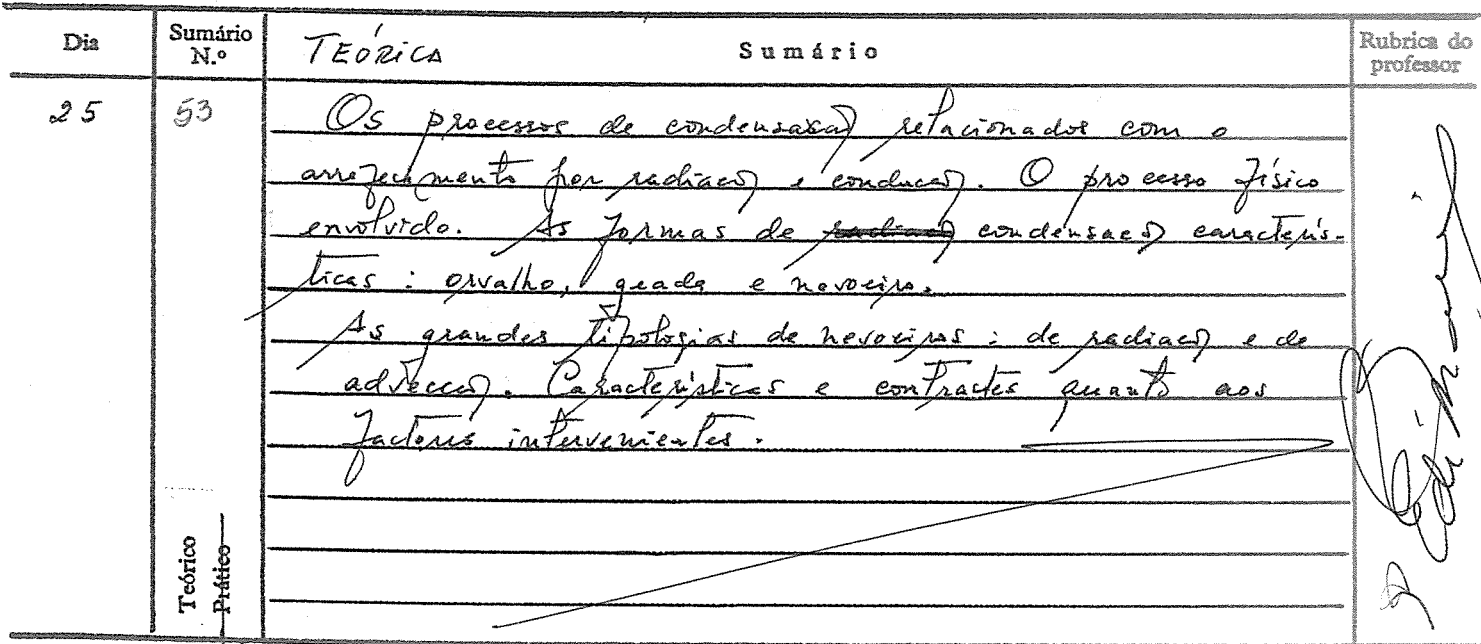 Dia Sumário N.º TEÓRICA Sumário Rubrica do professor
25 53 Os processos de condensação relacionados com o
arrefecimento por radiação e condução. O processo físico
envolvido. As formas de radiação condensação caracterís-
ticas : orvalho, geada e nevoeiro.
As grandes tipologias de nevoeiros : de radiação e de
advecção. Características e contractes quanto aos
factores intervenientes.
Teórico
Prático